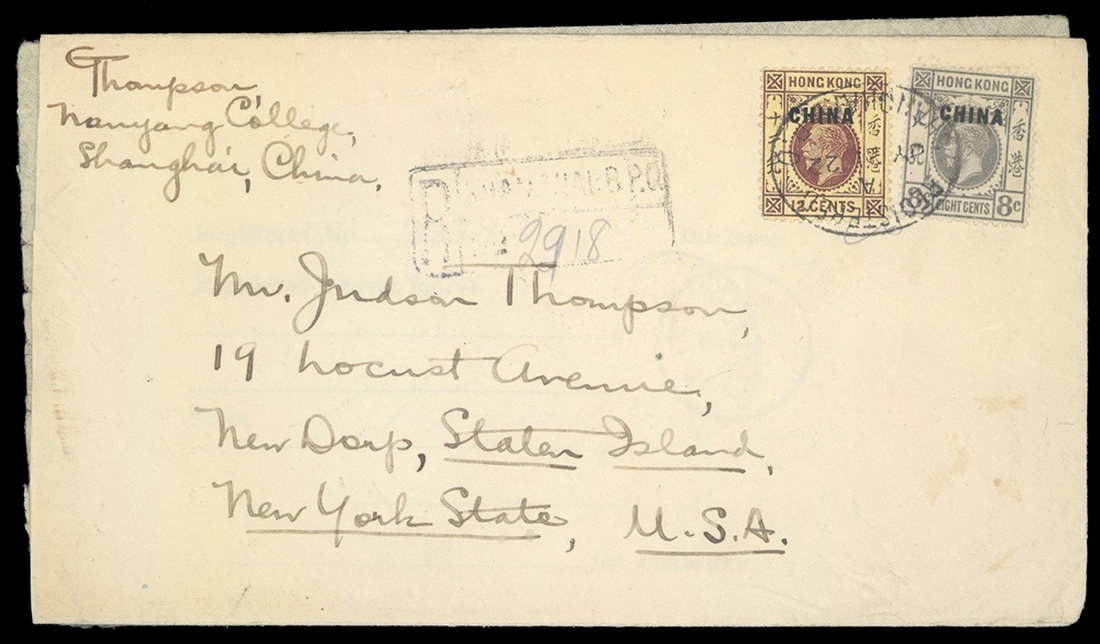 Thompson,
Nanyang College,
Shanghai, China.
HONG KONG
CHINA
香港
12 CENTS
HONG KONG
CHINA
香港
EIGHT CENTS 8c
R SHANGHAI B.P.O.
2918
Mr. Judson Thompson,
19 Locust Avenue,
New Dorp, Staten Island,
New York State, U.S.A.